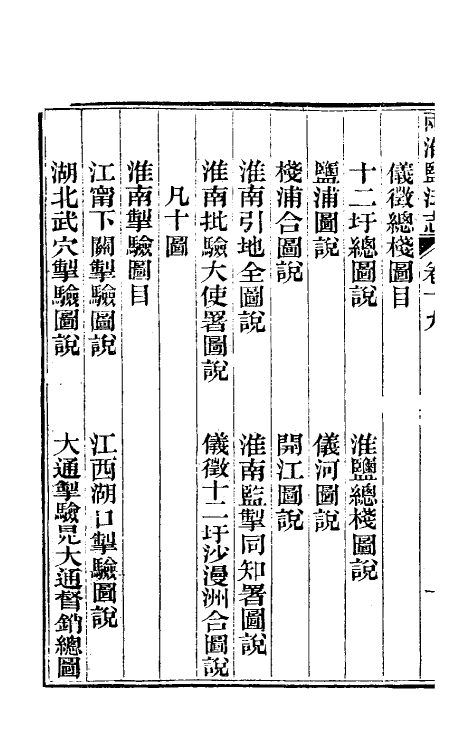 兩淮鹽法志 卷十九 一
儀徵總棧圖目
十二圩總圖說 淮鹽總棧圖說
鹽浦圖說 儀河圖說
棧浦合圖說 開江圖說
淮南引地全圖說 淮南監掣同知署圖說
淮南批驗大使署圖說 儀徵十二圩沙漫洲合圖說
凡十圖
淮南掣驗圖目
江甯下關掣驗圖說 江西湖口掣驗圖說
湖北武穴掣驗圖說 大通掣驗見大通督銷總圖